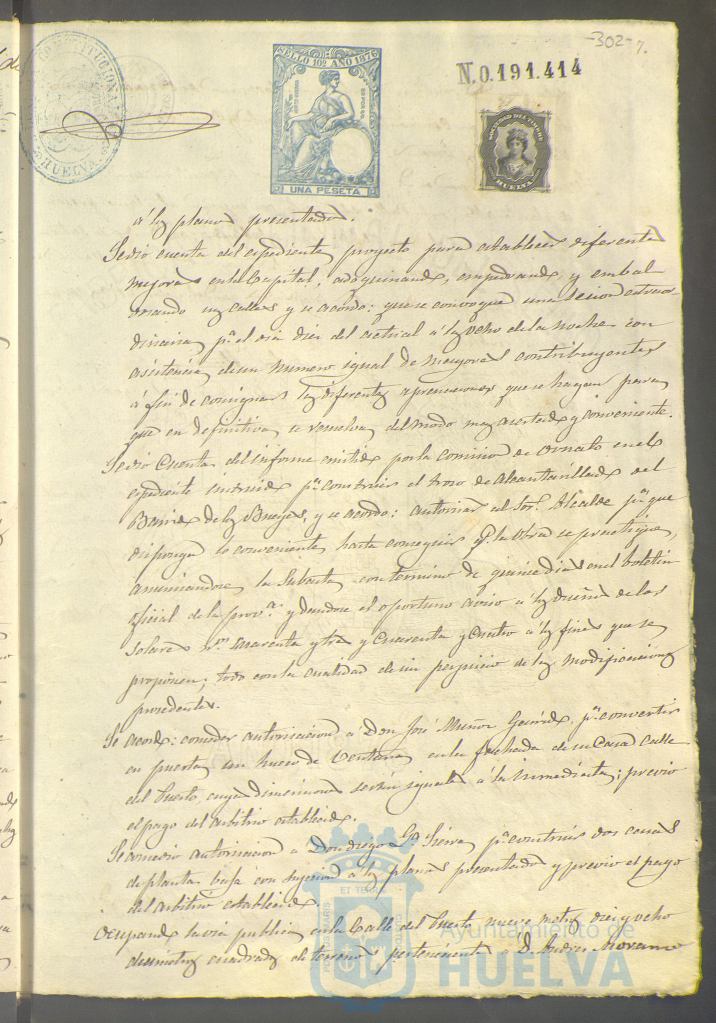 -302- 7.
SELLO 10º AÑO 1876
UNA PESETA
N.0.191.414
SOCIEDAD DEL TIMBRE
HUELVA
HUELVA
á los planos presentados.
Se dió cuenta del espediente proyecto para establecer diferentes
mejoras en la Capital, adoquinando, empedrando y embal
dosando sus calles y se acordó: que se convoque una sesion estraor-
dinaria pª el dia diez del actual á las ocho de la noche con
asistencia de un numero igual de mayores contribuyentes
á fin de consignar las diferentes apreciaciones que se hagan para
que en definitiva se resuelva del modo mas acertado y conveniente.
Se dió Cuenta del informe emitido por la comision de ornato en el
espediente instruido pª construir el trozo de Alcantarillado del
Barrio de los Bueyes, y se acordó: autorizar al Sor. Alcalde pª que
disponga lo conveniente hasta conseguir q. la obra se practique,
anunciandose la Subasta con termino de quince dias en el boletin
oficial de la provª y dandose el oportuno aviso á los dueños de los
solares nos cuarenta y tres y cuarenta y cuatro á los fines que se
proponen; todo con la cualidad de sin perjuicio de las modificaciones
procedentes.
Se acordó: conceder autorizacion á Don José Muñoz pª convertir
en puerta un hueco de Ventana en la fachada de su Casa Calle
del Puerto, cuyas dimensiones serán iguales á la inmediata; previo
el pago del arbitrio establecido.
Se concedio autorizacion á Don Diego Gª Sierra pª construir dos casas
de planta baja con sujecion á los planos presentados y previo el pago
del arbitrio establecido.
Ocupando la via publica en la Calle del Puerto nueve metros diez y ocho
decimetros cuadrados de terreno perteneciente á D. Andres Moreno
ET TERRAE
PORTUS MARIS
CUSTODIA
Ayuntamiento de
HUELVA